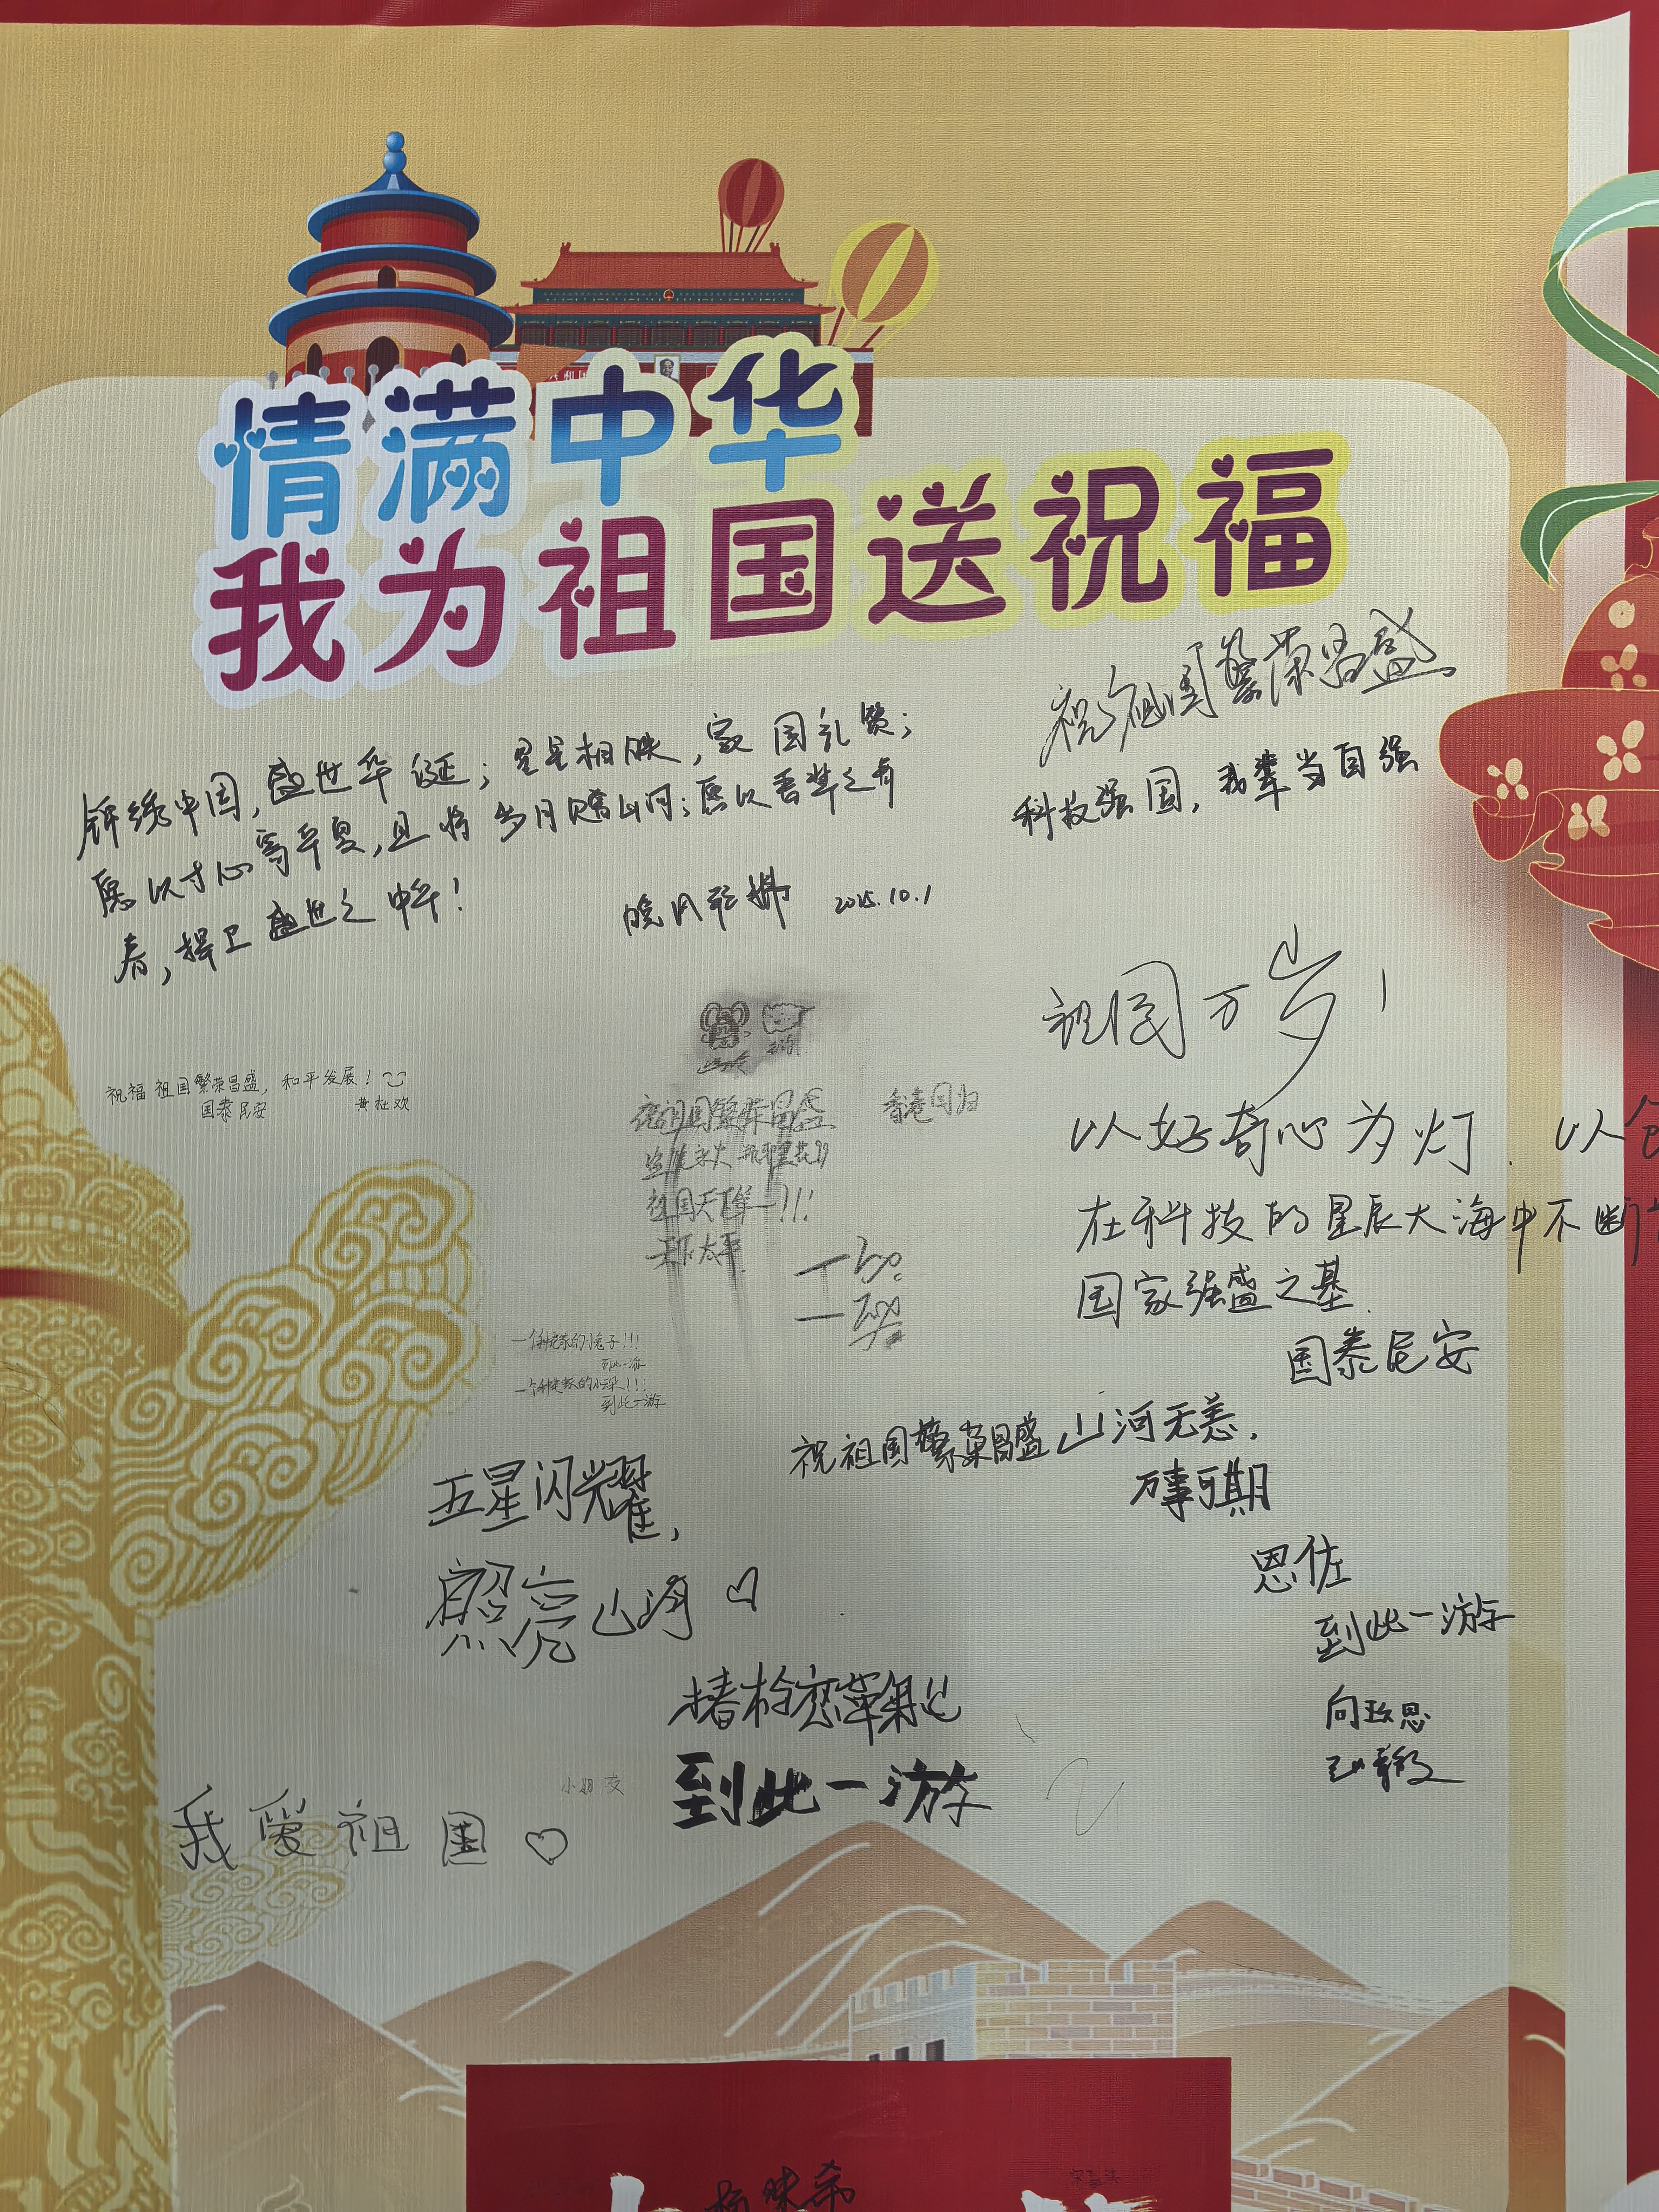 情满中华
我为祖国送祝福
祝祖国繁荣昌盛
科技强国,我辈当自强
锦绣中国,盛世华诞;星星相映,家国礼赞;
愿以寸心寄华夏,且将岁月赠山河;愿以吾辈之青
春,捍卫盛世之中华!
2025.10.1
祖国万岁!
祝福祖国繁荣昌盛,和平发展!
国泰民安
祝祖国繁荣昌盛
香港回归
祖国天下第一!!!
天下太平
以好奇心为灯.以
在科技的星辰大海中不断
国家强盛之基.
国泰民安
到此一游
到此一游
祝祖国繁荣昌盛山河无恙,
万事可期
五星闪耀,
照亮山河
恩佐
到此一游
到此一游
我爱祖国